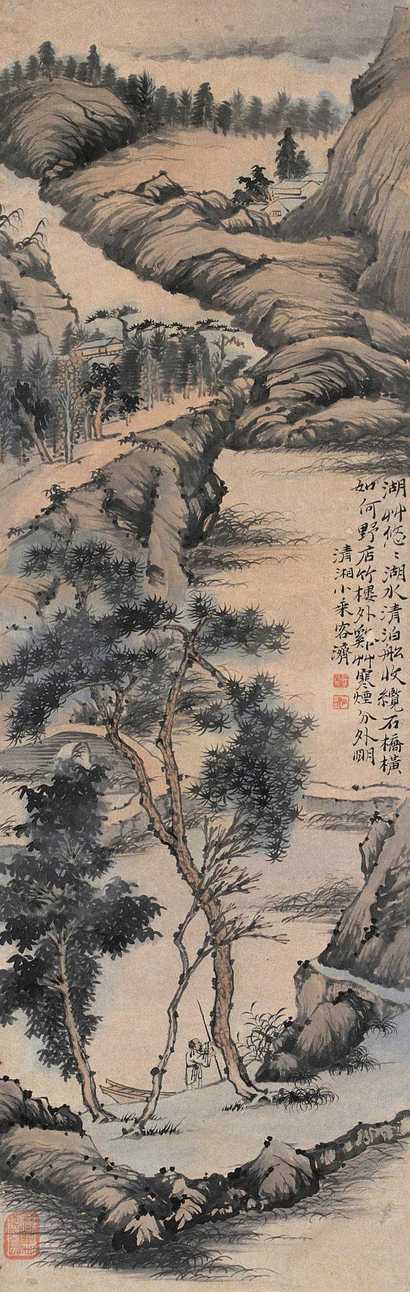 湖艸悠〻湖水清泊船收纜石橋橫
如何野店竹樓外谿艸寒煙分外明
清湘小乘客濟